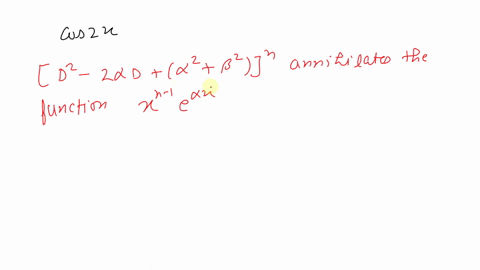 cos2x
[D² - 2αD + (α² + β²)]ⁿ annihilates the
function xⁿ⁻¹ e^αx